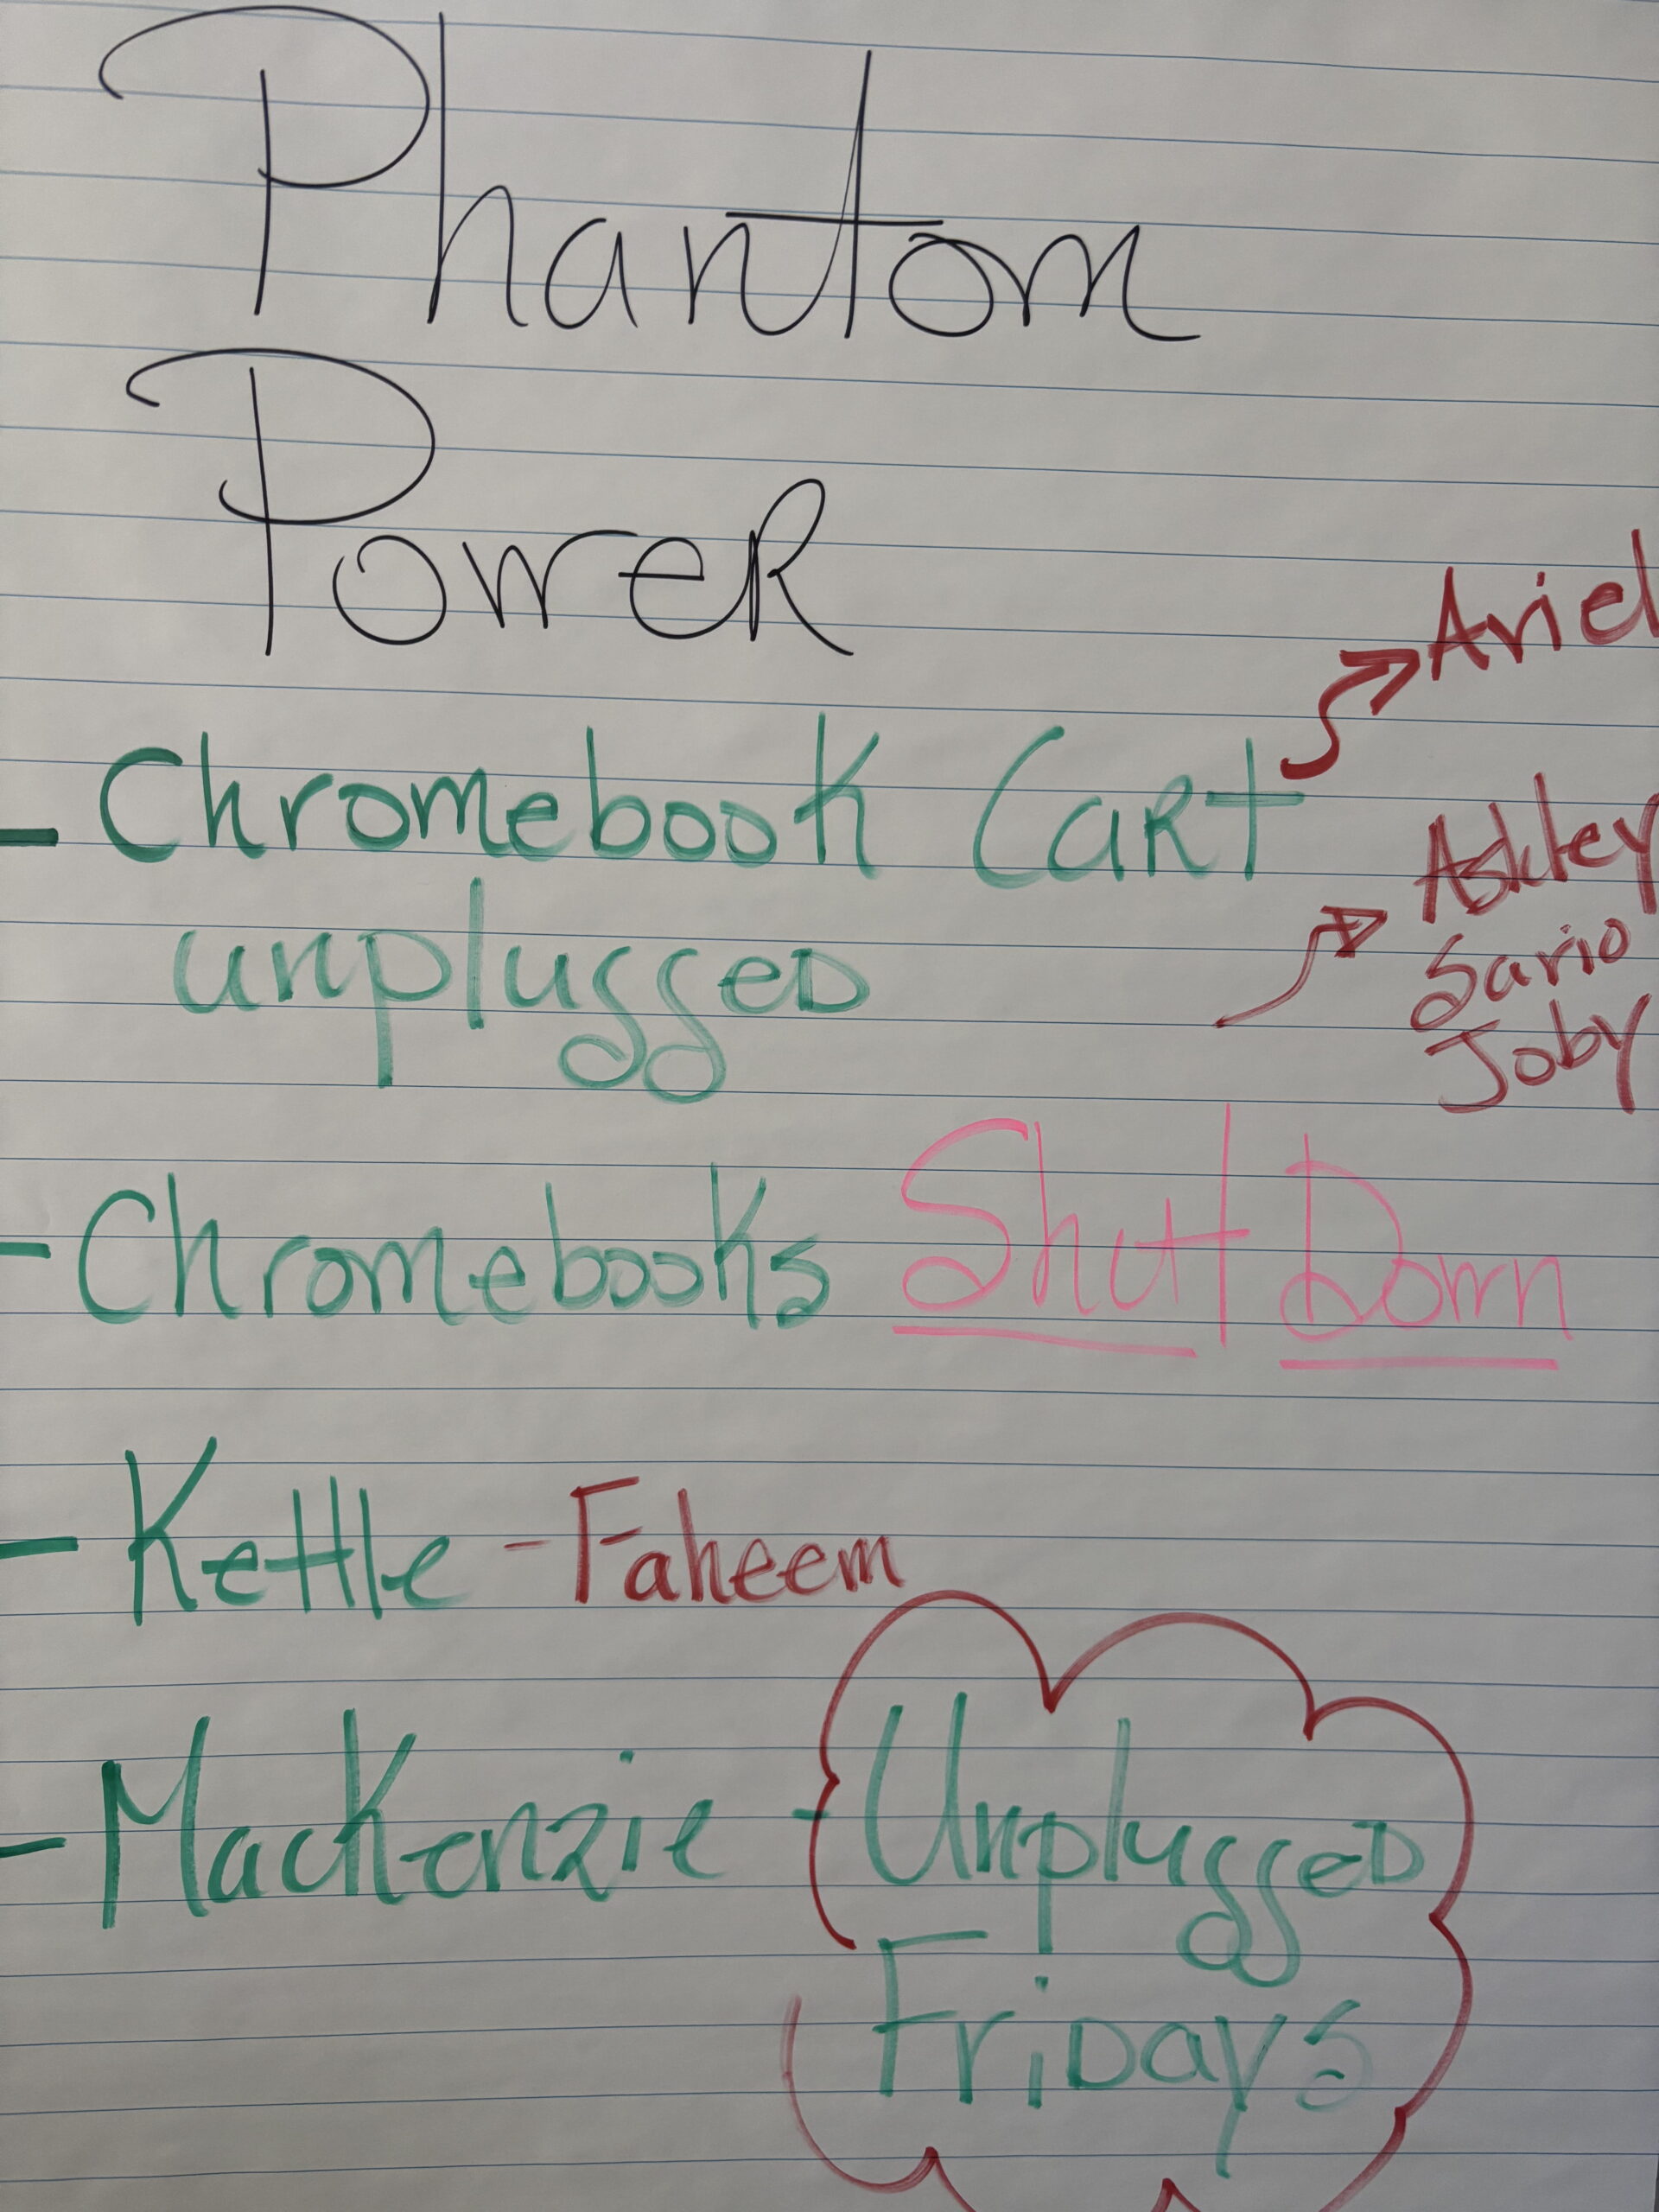 Phantom
Power
Ariel
- Chromebook Cart
unplugged
Ashley
Sario
Joby
- Chromebooks Shut Down
- Kettle - Faheem
- MacKenzie - Unplugged
Fridays